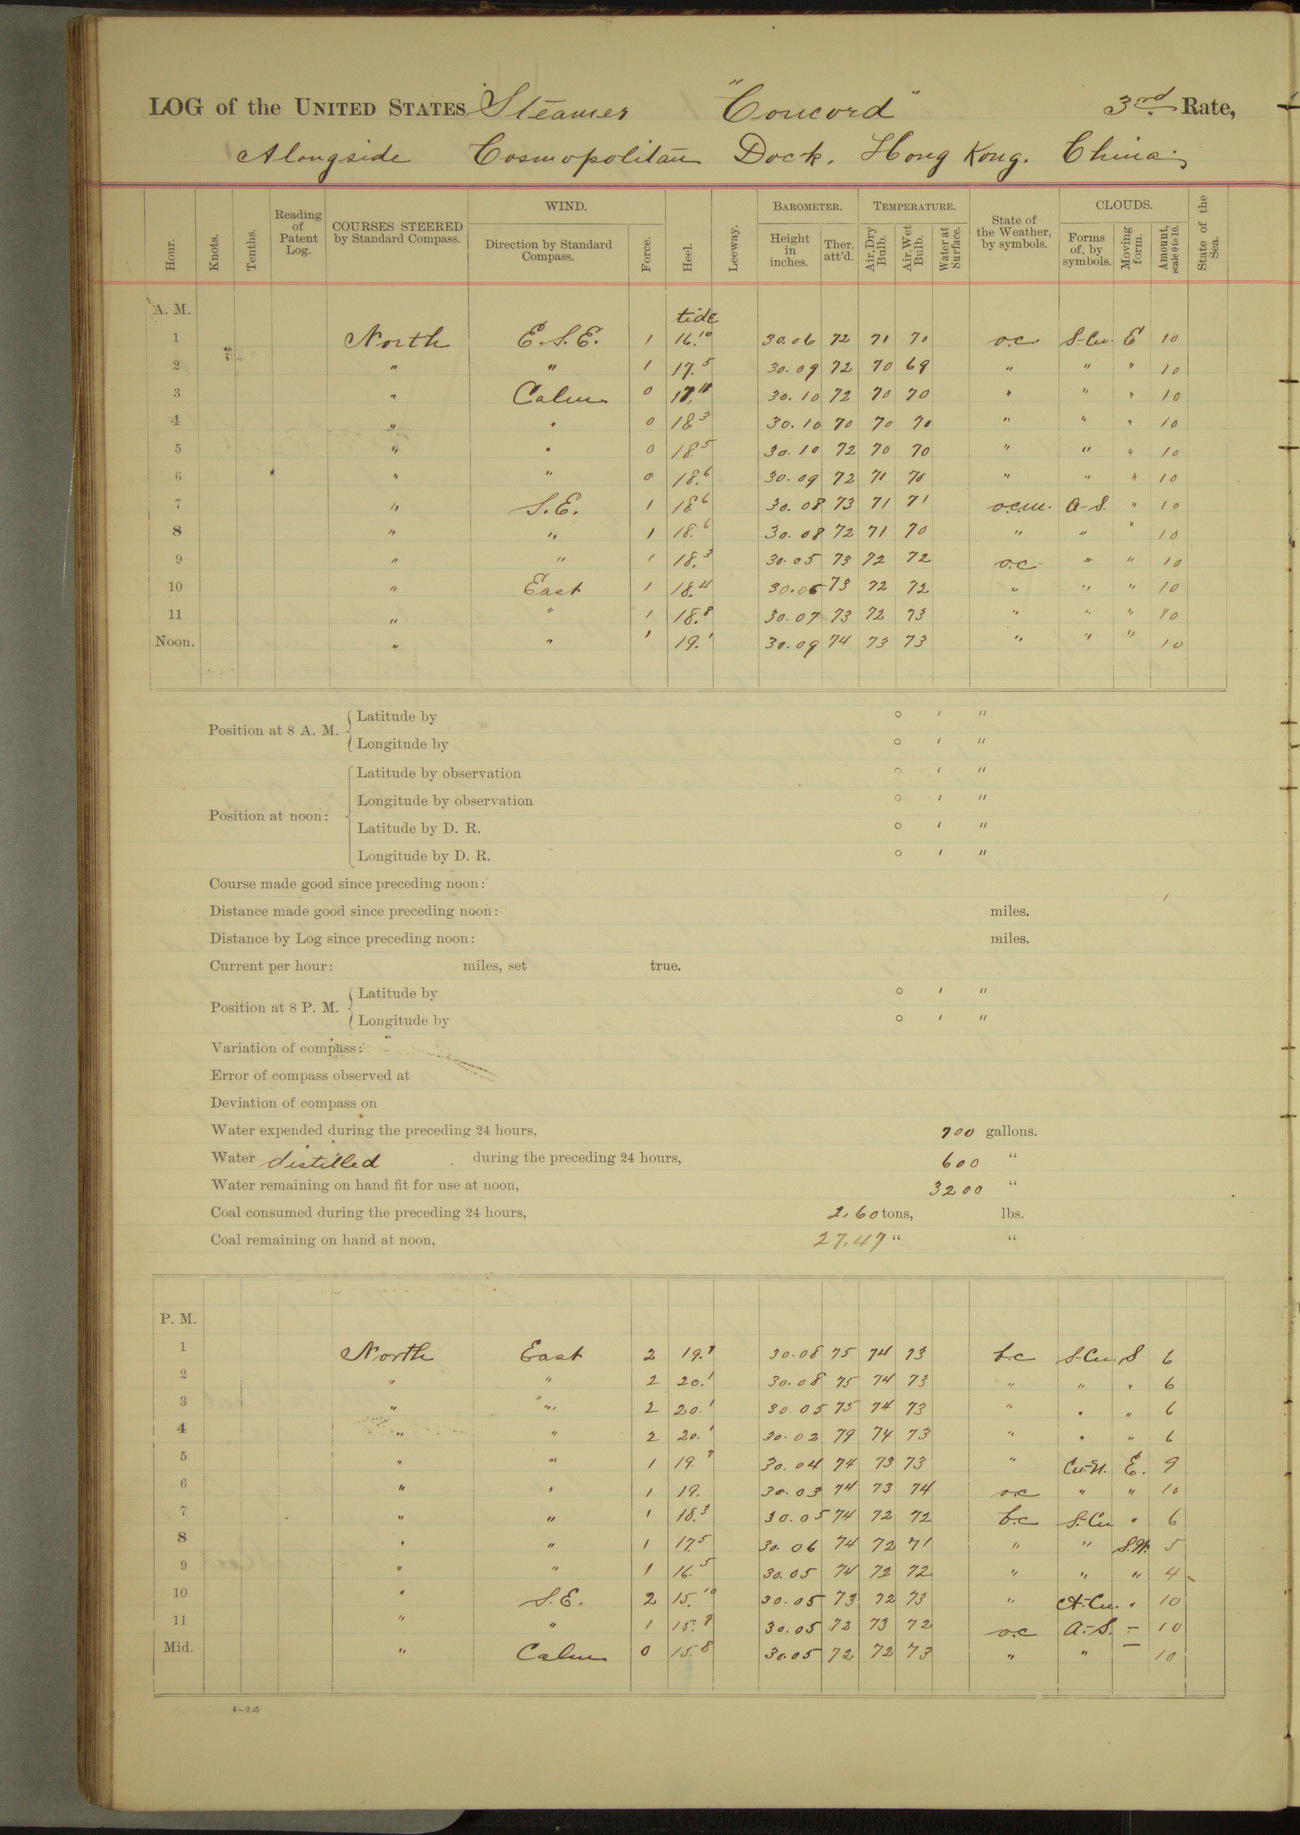 LOG of the UNITED STATES Steamer "Concord" 3rd Rate,
Alongside Cosmopolitan Dock. Hong Kong. China.
Hour. Knots. Tenths. Reading of Patent Log. COURSES STEERED by Standard Compass. WIND. Direction by Standard Compass. Force. Heel. Leeway. BAROMETER. Height in inches. Ther. att'd. TEMPERATURE. Air, Dry Bulb. Air, Wet Bulb. Water at Surface. State of the Weather, by symbols. CLOUDS. Forms of, by symbols. Moving form. Amount, scale 0 to 10. State of the Sea.
A. M. tide
1 North E.S.E. 1 16.10 30.06 72 71 70 o.c. S-Cu. E 10
2 " " 1 17.5 30.09 72 70 69 " " " 10
3 " Calm 0 30.10 72 70 70 " " " 10
4 " " 0 18.3 30.10 70 70 70 " " " 10
5 " " 0 18.5 30.10 72 70 70 " " " 10
6 " " 0 18.6 30.09 72 71 70 " " " 10
7 " S.E. 1 18.6 30.08 73 71 71 o.c.m. A-S. " 10
8 " " 1 18.6 30.08 72 71 70 " " " 10
9 " " 1 18.3 30.05 73 72 72 o.c. " " 10
10 " East 1 18.4 30.06 73 72 72 " " " 10
11 " " 1 18.8 30.07 73 72 73 " " " 10
Noon. " " 1 19.1 30.09 74 73 73 " " " 10
Position at 8 A. M. Latitude by ° ′ ″
Longitude by ° ′ ″
Latitude by observation ° ′ ″
Longitude by observation ° ′ ″
Position at noon:
Latitude by D. R. ° ′ ″
Longitude by D. R. ° ′ ″
Course made good since preceding noon:
Distance made good since preceding noon: miles.
Distance by Log since preceding noon: miles.
Current per hour: miles, set true.
Position at 8 P. M. Latitude by ° ′ ″
Longitude by ° ′ ″
Variation of compass:
Error of compass observed at
Deviation of compass on
Water expended during the preceding 24 hours, 700 gallons.
Water distilled during the preceding 24 hours, 600 "
Water remaining on hand fit for use at noon, 3200 "
Coal consumed during the preceding 24 hours, 2.60 tons, lbs.
Coal remaining on hand at noon, 27.47 " "
P. M.
1 North East 2 19.9 30.08 75 74 73 b.c S-Cu. S 6
2 " " 2 20.1 30.08 75 74 73 " " " 6
3 " " 2 20.1 30 05 75 74 73 " " " 6
4 " " 2 20.1 30.02 79 74 73 " " " 6
5 " " 1 19.7 30.04 74 73 73 " Cu-N. E. 9
6 " " 1 19. 30.03 74 73 74 o.c " " 10
7 " " 1 18.3 30.05 74 72 72 b.c S-Cu " 6
8 " " 1 17.5 30.06 74 72 71 " " S.W. 5
9 " " 1 16.5 30.05 74 72 72 " " " 4
10 " S.E. 2 15.10 30.05 73 72 73 " A-Cu. " 10
11 " " 1 15.9 30.05 72 73 72 o.c A-S. - 10
Mid. " Calm 0 15.8 30.05 72 72 73 " " - 10
4—205